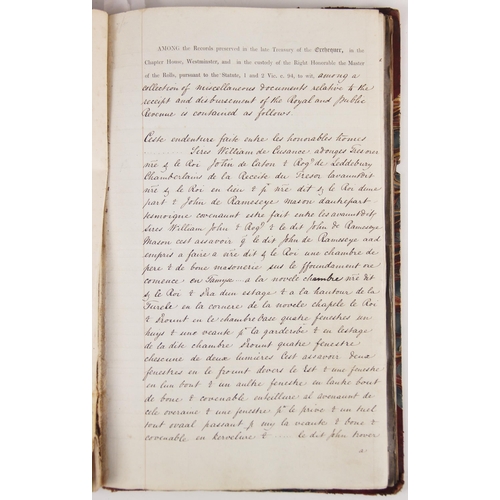 AMONG the Records preserved in the late Treasury of the Exchequer, in the
Chapter House, Westminster, and in the custody of the Right Honorable the Master
of the Rolls, pursuant to the Statute, 1 and 2 Vic. c. 94, to wit, among a
collection of miscellaneous documents relative to the
receipt and disbursement of the Royal and public
Revenue is contained as follows.
Ceste endenture faite entre les honorables homes
Sires William de Cusance adonques Tresorer
nre S le Roi John de Caton & Rog de Leddebury
Chamberlains de la Receite du Tresor lavauntdit
nre S le Roi en lieu & p nre dit S le Roi dune
part & John de Rameseye mason dautrepart
tesmoigne covenaunt estre fait entre les avauntditz
Sires William John & Rog & le dit John de Ramseye
Mason cest assavoir q le dit John de Ramseye aad
empris a faire a nre dit S le Roi une chambre de
pere & de bone masonerie sus le ffoundament ore
comence en Tamyse a la novele chambre nre dit
S le Roi & dun estage & a la hautour de la
Turelle en la cornere de la novele chapele le Roi
& en le chambre base quatre fenestres un
huys & une veaute p la garderobe & en lestage
de la dite chambre quatre fenestre
chescune de deux lumieres Cest assavoir deux
fenestres en le frount devers le Est & une fenestre
en lun bout & un aultre fenestre en lautre bout
de bone & covenable entaillure al avenaunt de
cele overaine & une fenestre p le prive & un tuel
tout ovaal passant p my la veaute & bone &
covenable en kervelure & .... le dit John trover
a